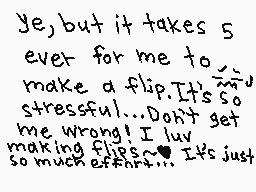 ye, but it takes 5
ever for me to
make a flip. It's so
stressful... Don't get
me wrong! I luv
making flips~♥ It's just
so much effort...